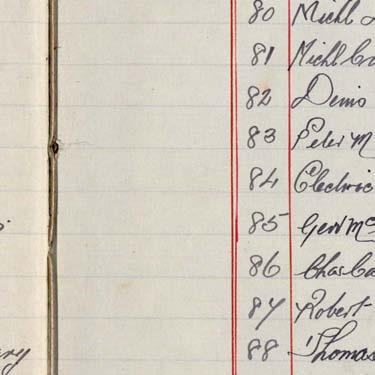 80 Michl
81 Michl
82 Denis
83 Peter M
84
85 Geo Mc
86 Chas Ca
87 Robert
88 Thomas